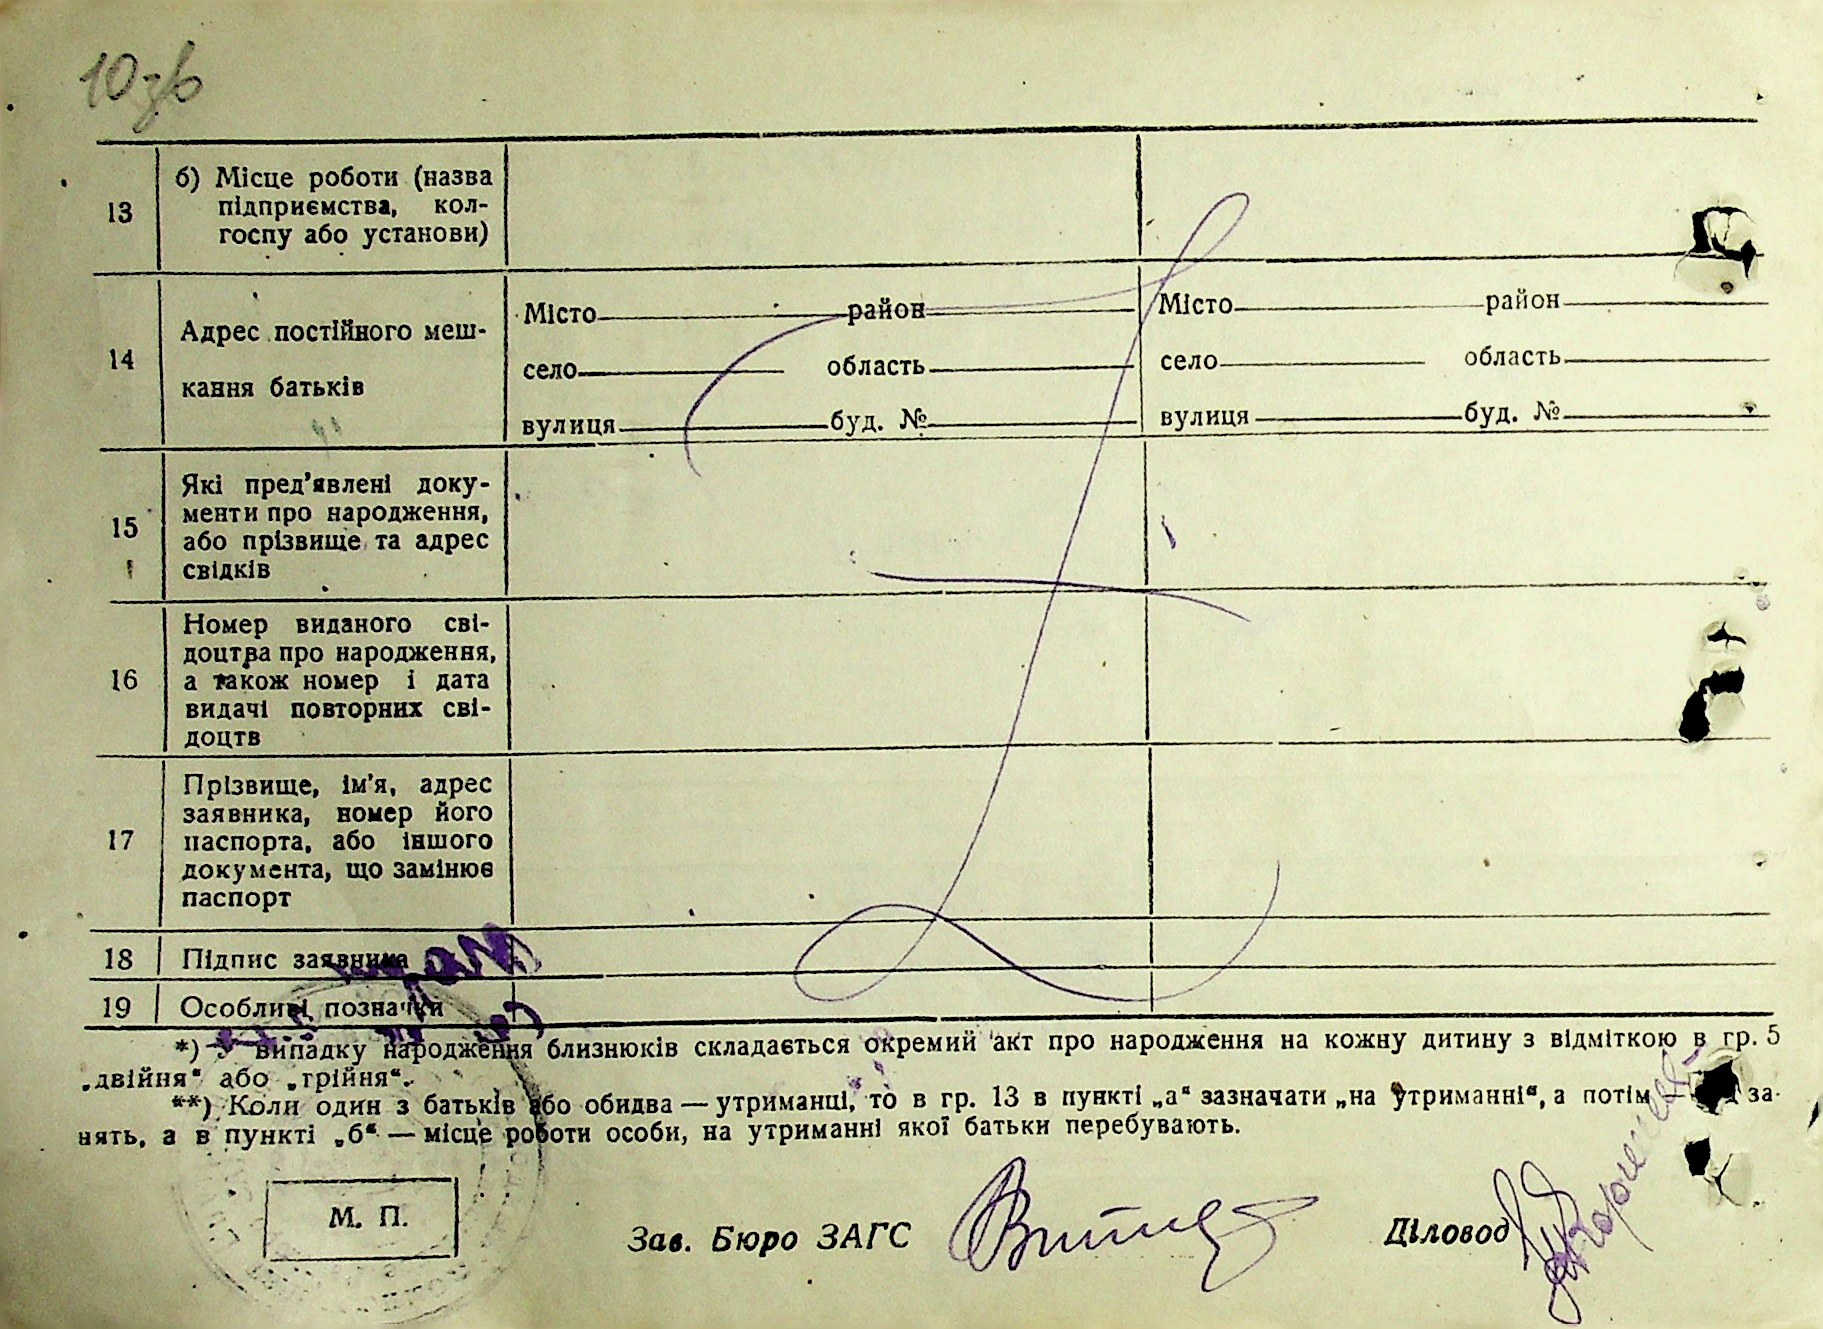 10зв
13
б) Місце роботи (назва
підприємства, кол-
госпу або установи)
14
Адрес постійного меш-
кання батьків
Місто район
село область
вулиця буд. №
Місто район
село область
вулиця буд. №
15
Які пред’явлені доку-
менти про народження,
або прізвище та адрес
свідків
16
Номер виданого сві-
доцтва про народження,
а також номер і дата
видачі повторних сві-
доцтв
17
Прізвище, ім’я, адрес
заявника, номер його
паспорта, або іншого
документа, що замінює
паспорт
18 Підпис заявника
19 Особливі позначки
*) У випадку народження близнюків складається окремий акт про народження на кожну дитину з відміткою в гр. 5
„двійня“ або „трійня“.
**) Коли один з батьків або обидва — утриманці, то в гр. 13 в пункті „а“ зазначати „на утриманні“, а потім — за-
нять, а в пункті „б“ — місце роботи особи, на утриманні якої батьки перебувають.
М. П.
Зав. Бюро ЗАГС
Діловод